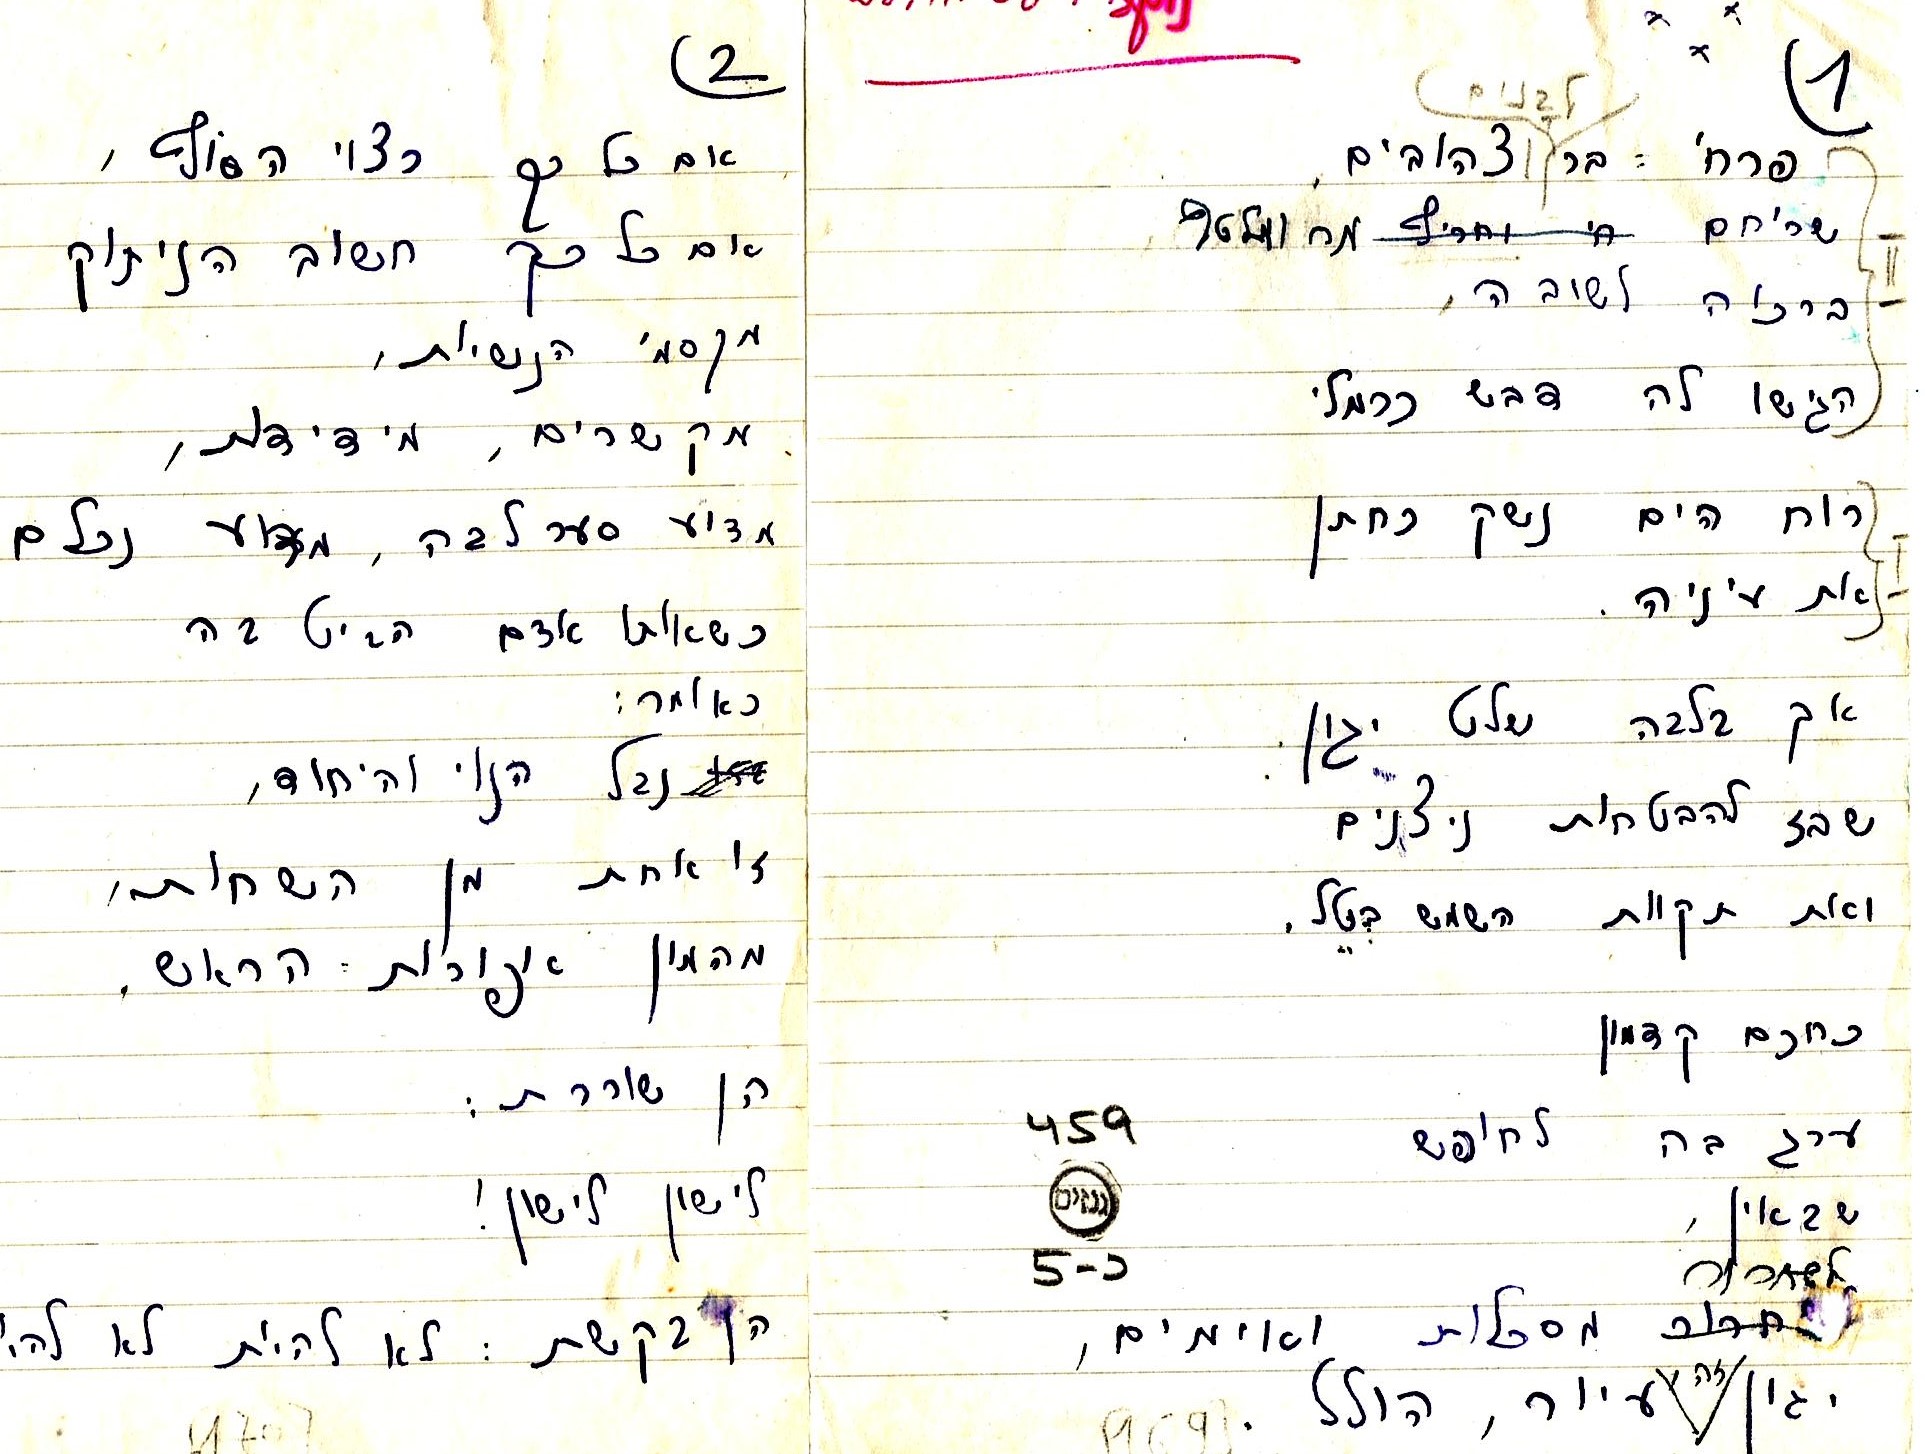 (1
לבנים
פרחי - בר צהובים,
שריחם חי וחריף מר
ברזוה לשובה,
הגישו לה דבש כרמלי
II
רוח הים נשק כחתן
את עיניה.
I
אך בלבה שלט יגון
שבז להבטחות ניצנים
ואת תקוות השמש ביטל.
כחכם קדמון
ערג בה לחופש
שבאין,
מסכלות ואוימים,
יגון זה עיור, הולל.
459
גנזים
5-כ
(2
אם כל כך רצוי הסוף,
אם כל כך חשוב הניתוק
מקסמי הנשיות,
מקשרים, מידידות,
מדוע סער לבה, מדוע נכלם
כשאותו אדם הביט בה
כאומר:
נבל הנוי והיחוד,
זו אחת מן השחות,
מהמון אפורות - הראש.
הן שוררת:
לישון לישון!
הן בקשת: לא להית לא להי